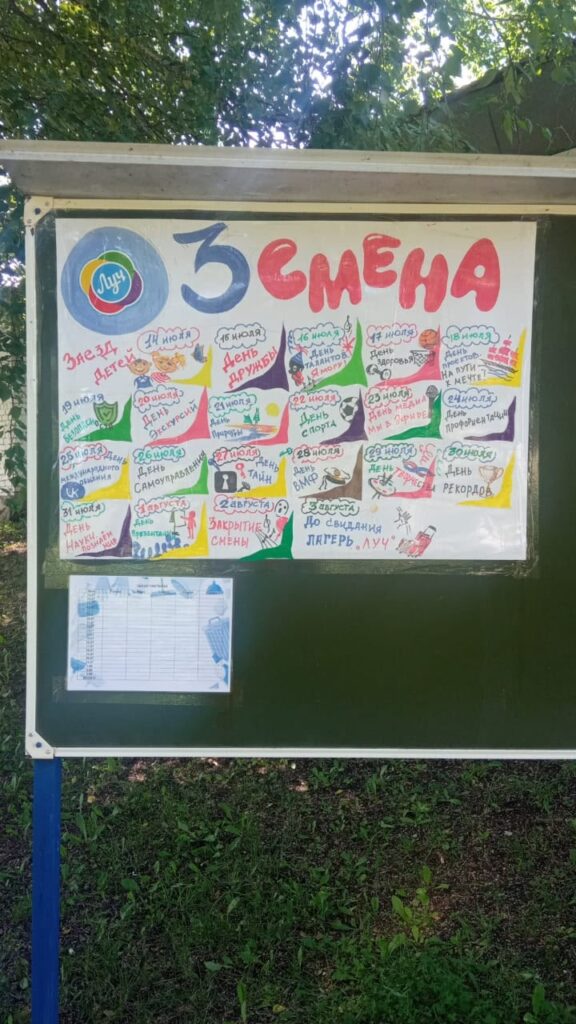 Луч
3 СМЕНА
Заезд детей 14 июля
15 июля День дружбы
16 июля День талантов "Я могу"
17 июля День здоровья
18 июля День проектов "На пути к мечте"
19 июля День безопасности
20 июля День экскурсий
21 июля День природы
22 июля День спорта
23 июля День медиа "Мы в эфире"
24 июля День профориентации
25 июля День международного общения
26 июля День самоуправления
27 июля День тайн
28 июля День ВМФ
29 июля День творчества
30 июля День рекордов
31 июля День науки
1 августа День
2 августа Закрытие смены
3 августа До свидания лагерь "Луч"